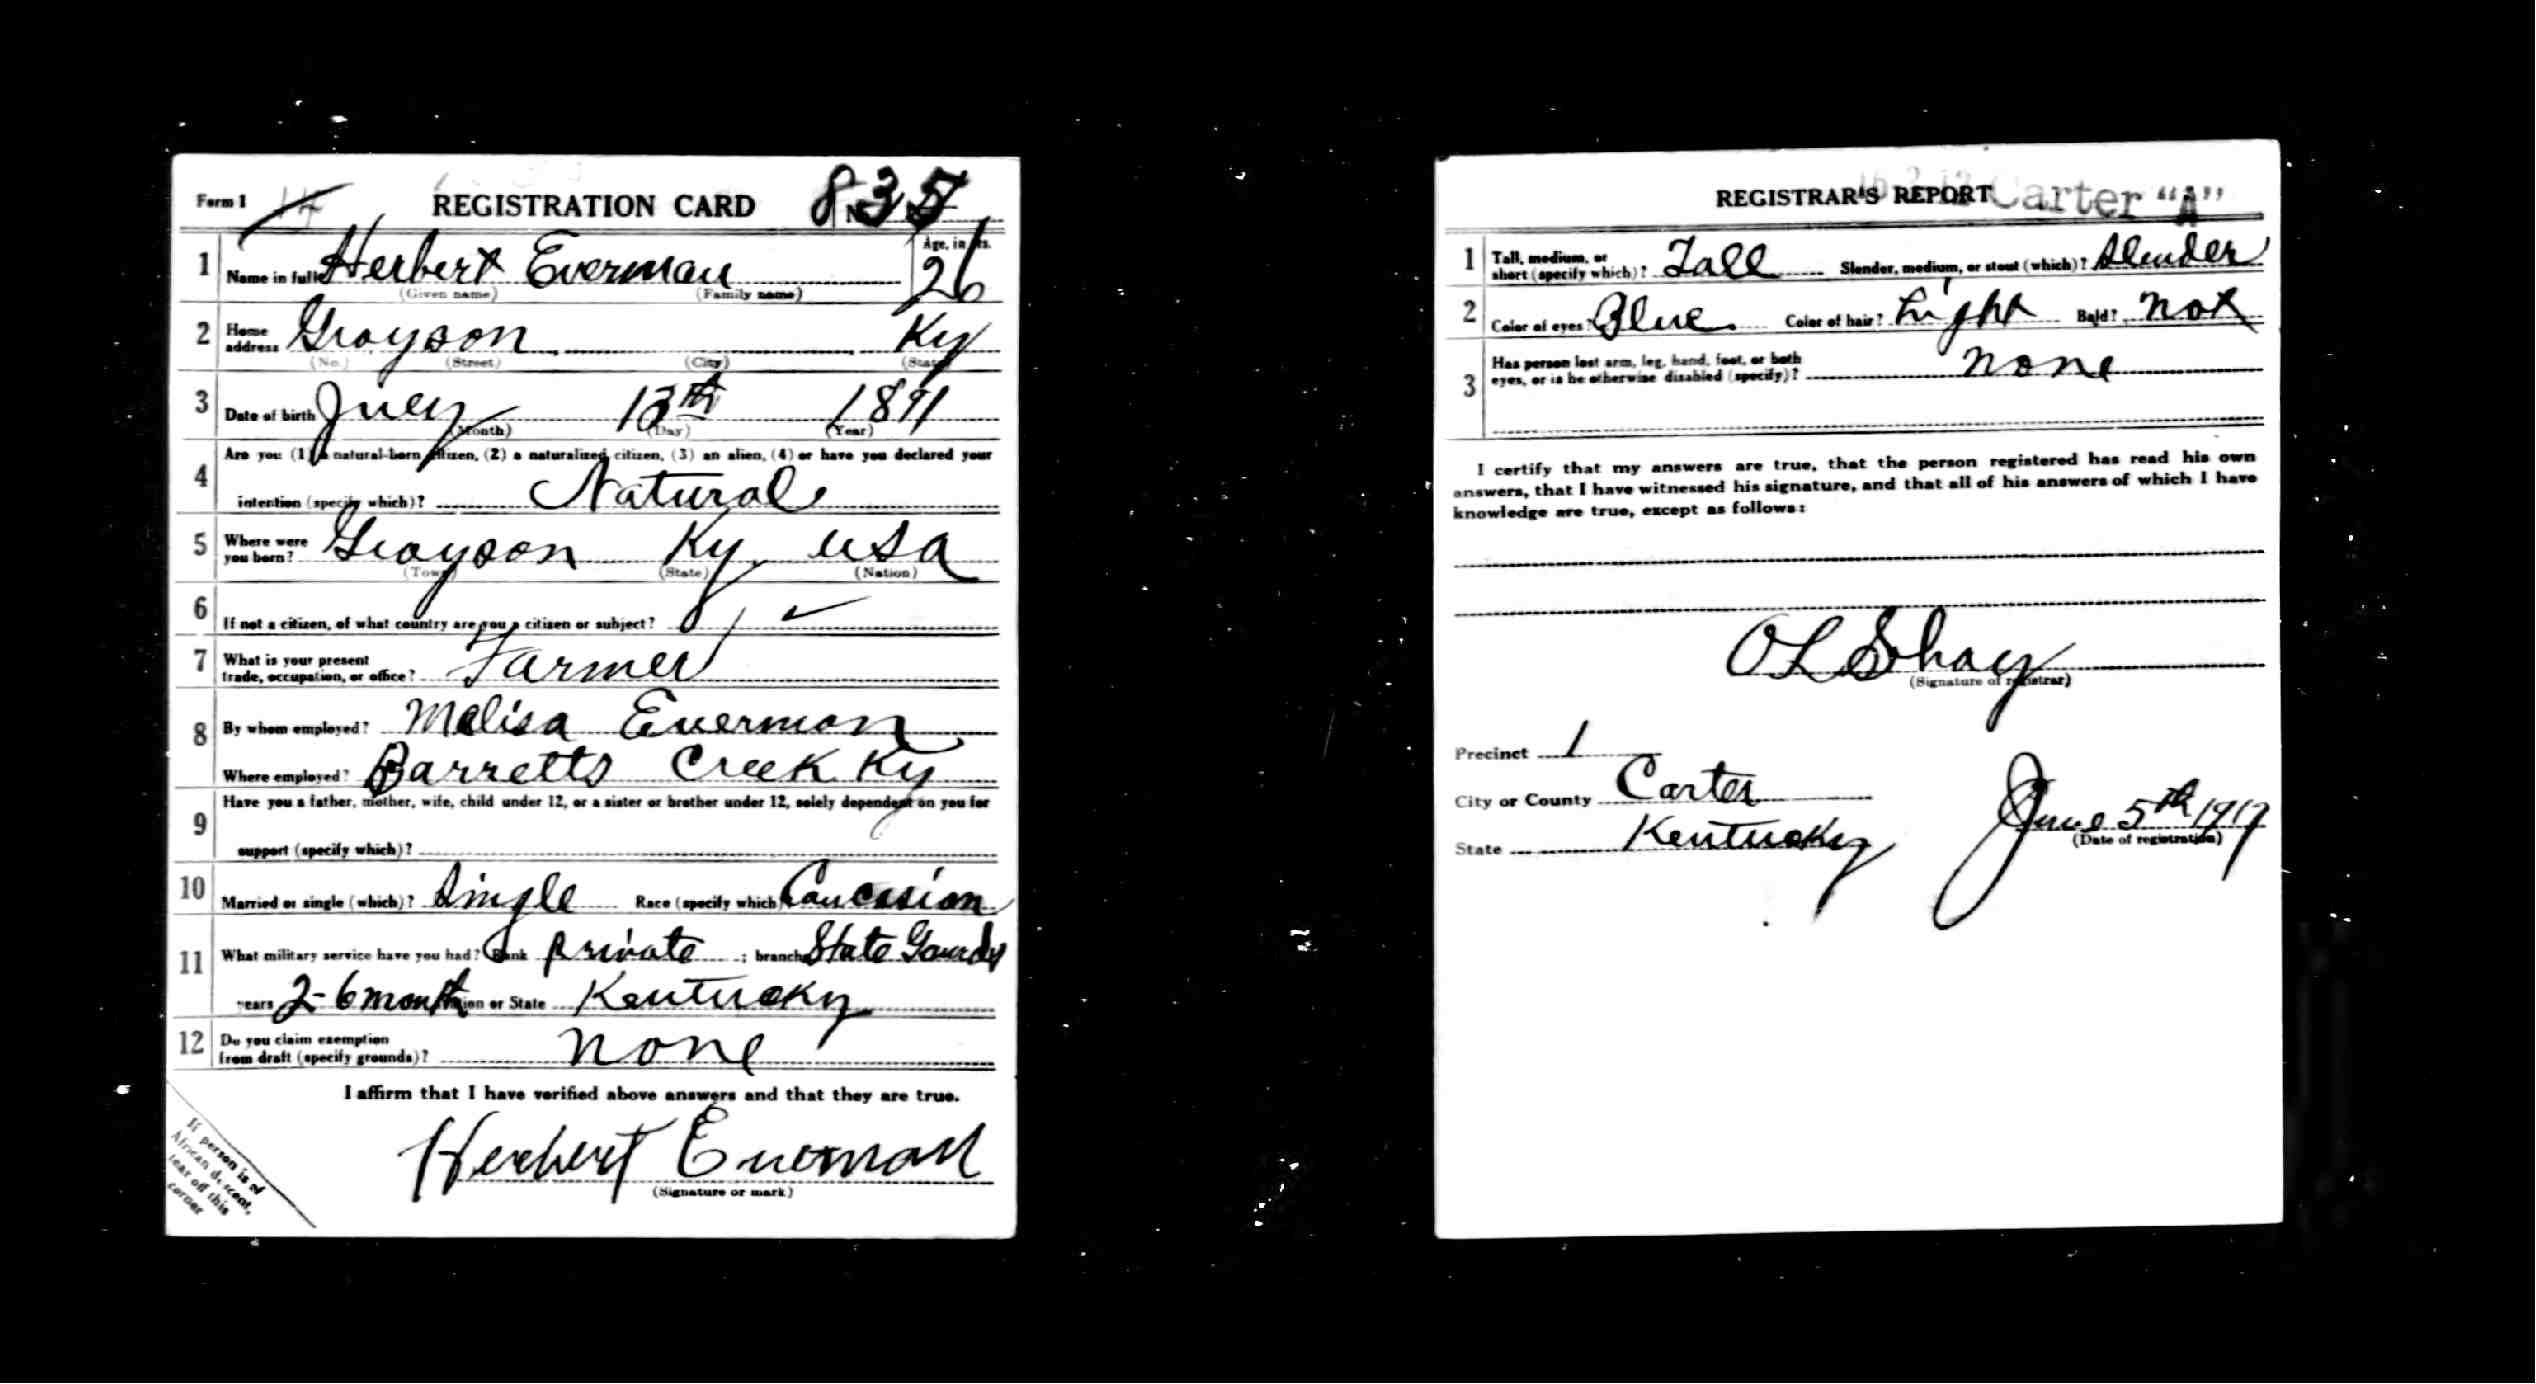 Form 1 REGISTRATION CARD No. 835
1 Name in full Herbert Everman Age, in yrs. 26
(Given name) (Family name)
2 Home address Grayson Ky
(No.) (Street) (City) (State)
3 Date of birth July 13th 1891
(Month) (Day) (Year)
4 Are you (1) a natural-born citizen, (2) a naturalized citizen, (3) an alien, (4) or have you declared your
intention (specify which)? Natural
5 Where were you born? Grayson Ky USA
(Town) (State) (Nation)
6 If not a citizen, of what country are you a citizen or subject?
7 What is your present trade, occupation, or office? Farmer
8 By whom employed? Melisa Everman
Where employed? Barretts Creek Ky
9 Have you a father, mother, wife, child under 12, or a sister or brother under 12, solely dependent on you for
support (specify which)?
10 Married or single (which)? Single Race (specify which) Caucasion
11 What military service have you had? Rank private ; branch State Guards
years 2-6 month Nation or State Kentucky
12 Do you claim exemption from draft (specify grounds)? None
I affirm that I have verified above answers and that they are true.
Herbert Everman
(Signature or mark)
If person is of
African descent,
tear off this
corner
REGISTRAR'S REPORT Carter "A"
1 Tall, medium, or short (specify which)? Tall Slender, medium, or stout (which)? Slender
2 Color of eyes? Blue Color of hair? Light Bald? Not
3 Has person lost arm, leg, hand, foot, or both
eyes, or is he otherwise disabled (specify)? None
I certify that my answers are true, that the person registered has read his own
answers, that I have witnessed his signature, and that all of his answers of which I have
knowledge are true, except as follows:
O L Shay
(Signature of registrar)
Precinct 1
City or County Carter
State Kentucky
June 5th 1917
(Date of registration)